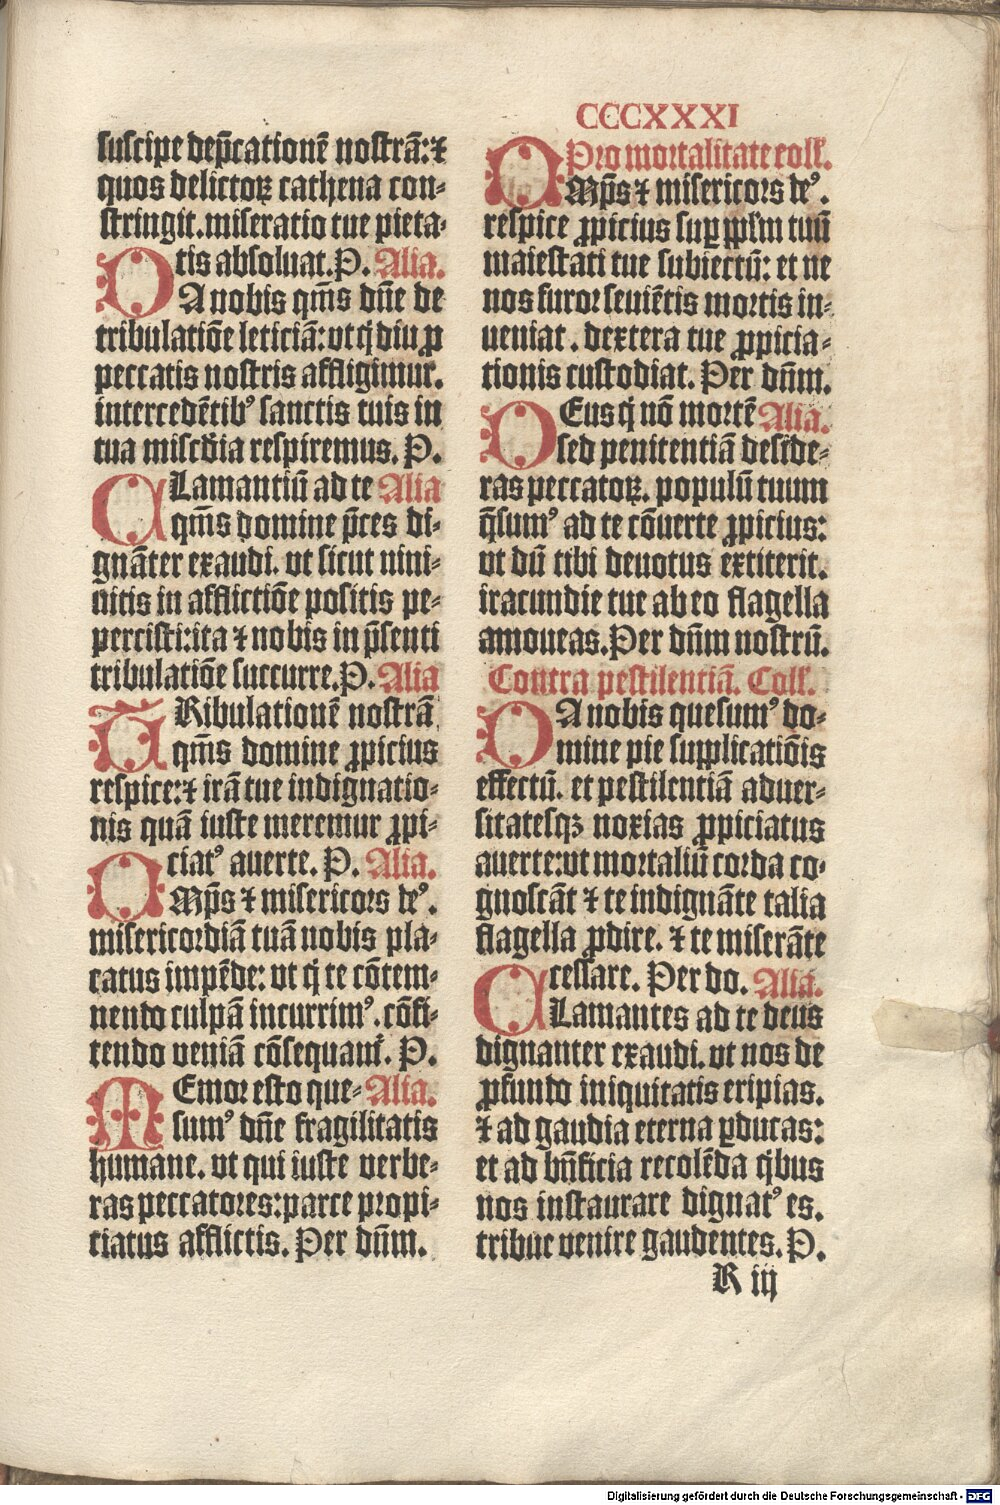 CCCXXXI
suscipe dep̄cationē nostrā: ⁊
quos delictoꝝ cathena con⸗
stringit. miseratio tue pieta⸗
tis absoluat. P. Alia.
DA nobis qm̄s dn̄e de
tribulatiōe leticiā: vt qͥ diu ꝓ
peccatis nostris affligimur.
intercedētibꝰ sanctis tuis in
tua mis̄cdia respiremus. P.
CLamantiū ad te Alia
qm̄s domine p̄ces di⸗
gnāter exaudi. vt sicut nini⸗
nitis in afflictiōe positis pe⸗
percisti: ita ⁊ nobis in p̄senti
tribulatiōe succurre. P. Alia
TRibulationē nostrā
qm̄s domine ꝓpicius
respice: ⁊ irā tue indignatio⸗
nis quā iuste meremur ꝓpi⸗
ciatꝰ auerte. P. Alia.
OMp̄s ⁊ misericors deꝰ.
misericordiā tuā nobis pla⸗
catus impēde: vt qͥ te cōtem⸗
nendo culpā incurrimꝰ. cōfi⸗
tendo veniā cōsequam̄. P.
MEmor esto que⸗ Alia.
sumꝰ dn̄e fragilitatis
humane. vt qui iuste verbe⸗
ras peccatores: parce propi⸗
ciatus afflictis. Per dn̄m.
Pro mortalitate coll̄.
OMp̄s ⁊ misericors deꝰ.
respice ꝓpicius suꝑ pplm̄ tuū
maiestati tue subiectū: et ne
nos furor seuiētis mortis in⸗
ueniat. dextera tue ꝓpicia⸗
tionis custodiat. Per dn̄m.
DEus qͥ nō mortē Alia.
sed penitentiā deside⸗
ras peccatoꝝ. populū tuum
q̄sumꝰ ad te cōuerte ꝓpicius:
vt dū tibi deuotus extiterit.
iracundie tue ab eo flagella
amoueas. Per dn̄m nostrū.
Contra pestilentiā. Coll̄.
DA nobis quesumꝰ do⸗
mine pie supplicatiōis
effectū. et pestilentiā aduer⸗
sitatesqꝫ noxias ꝓpiciatus
auerte: vt mortaliū corda co⸗
gnoscāt ⁊ te indignāte talia
flagella ꝓdire. ⁊ te miserāte
cessare. Per do. Alia.
CLamantes ad te deus
dignanter exaudi. vt nos de
ꝓfundo iniquitatis eripias.
⁊ ad gaudia eterna ꝑducas:
et ad bn̄ficia recolēda qͥbus
nos instaurare dignatꝰ es.
tribue venire gaudentes. P.
R iij
Digitalisierung gefördert durch die Deutsche Forschungsgemeinschaft - DFG